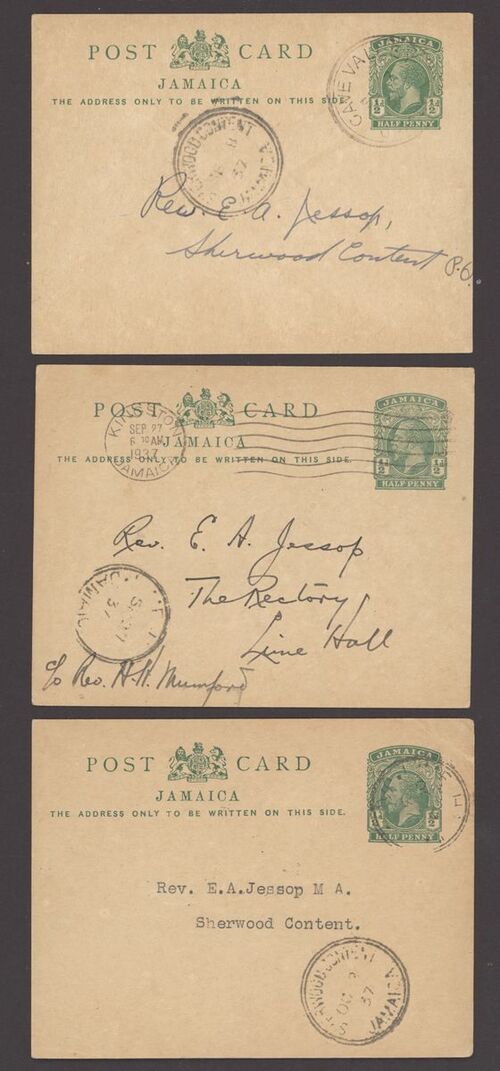 POST CARD
JAMAICA
THE ADDRESS ONLY TO BE WRITTEN ON THIS SIDE.
JAMAICA
½d ½d
HALF PENNY
CAVE VAL
SHERWOOD CONTENT JAMAICA
37
Rev. E. A. Jessop,
Sherwood Content P.O.
POST CARD
JAMAICA
THE ADDRESS ONLY TO BE WRITTEN ON THIS SIDE.
KINGSTON
SEP 27
6 30 AM
1937
JAMAICA
JAMAICA
½d ½d
HALF PENNY
Rev. E. A. Jessop
The Rectory
Lime Hall
JAMAICA
37
c/o Rev. H. K. Mumford
POST CARD
JAMAICA
THE ADDRESS ONLY TO BE WRITTEN ON THIS SIDE.
JAMAICA
½d
HALF PENNY
Rev. E.A.Jessop M A.
Sherwood Content.
SHERWOOD CONTENT
OC
37
JAMAICA